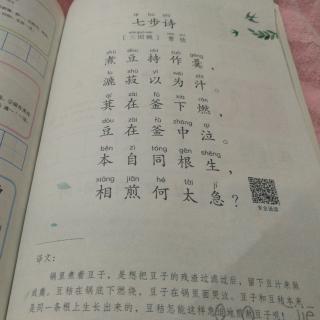 qī bù shī
七步诗
[三国魏] 曹植
zhǔ dòu chí zuò gēng
煮豆持作羹，
lù shū yǐ wéi zhī
漉菽以为汁。
qí zài fǔ xià rán
萁在釜下燃，
dòu zài fǔ zhōng qì
豆在釜中泣。
běn zì tóng gēn shēng
本自同根生，
xiāng jiān hé tài jí
相煎何太急？
译文：
锅里煮着豆子，是想把豆子的残渣过滤过后，留下豆汁来做
成羹。豆秸在锅底下燃烧，豆子在锅里面哭泣。豆子和豆秸本来
是同一条根上生长出来的，豆秸怎能这样急迫地煎熬豆子呢！